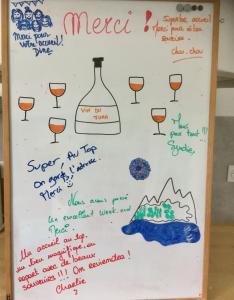 Merci !
Merci pour
votre accueil !
Superbe accueil
Merci pour
chou-chou
VIN DU
JURA
Merci
pour tout !!!
Sandrine
Super, Au Top
On garde l'adresse
Merci !
Nous avons passé
un excellent week-end
Merci
Un accueil au top,
un lieu magnifique, on
repart avec de beaux
souvenirs !!! On reviendra !
Charlie